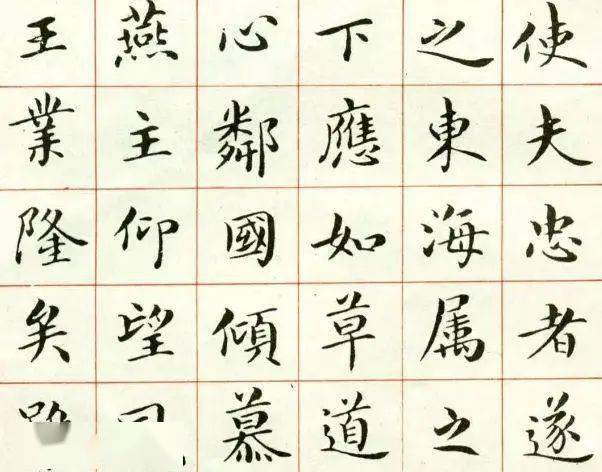 使夫忠者遂
之東海属之
下應如草道
心鄰國傾慕
燕主仰望
王業隆矣